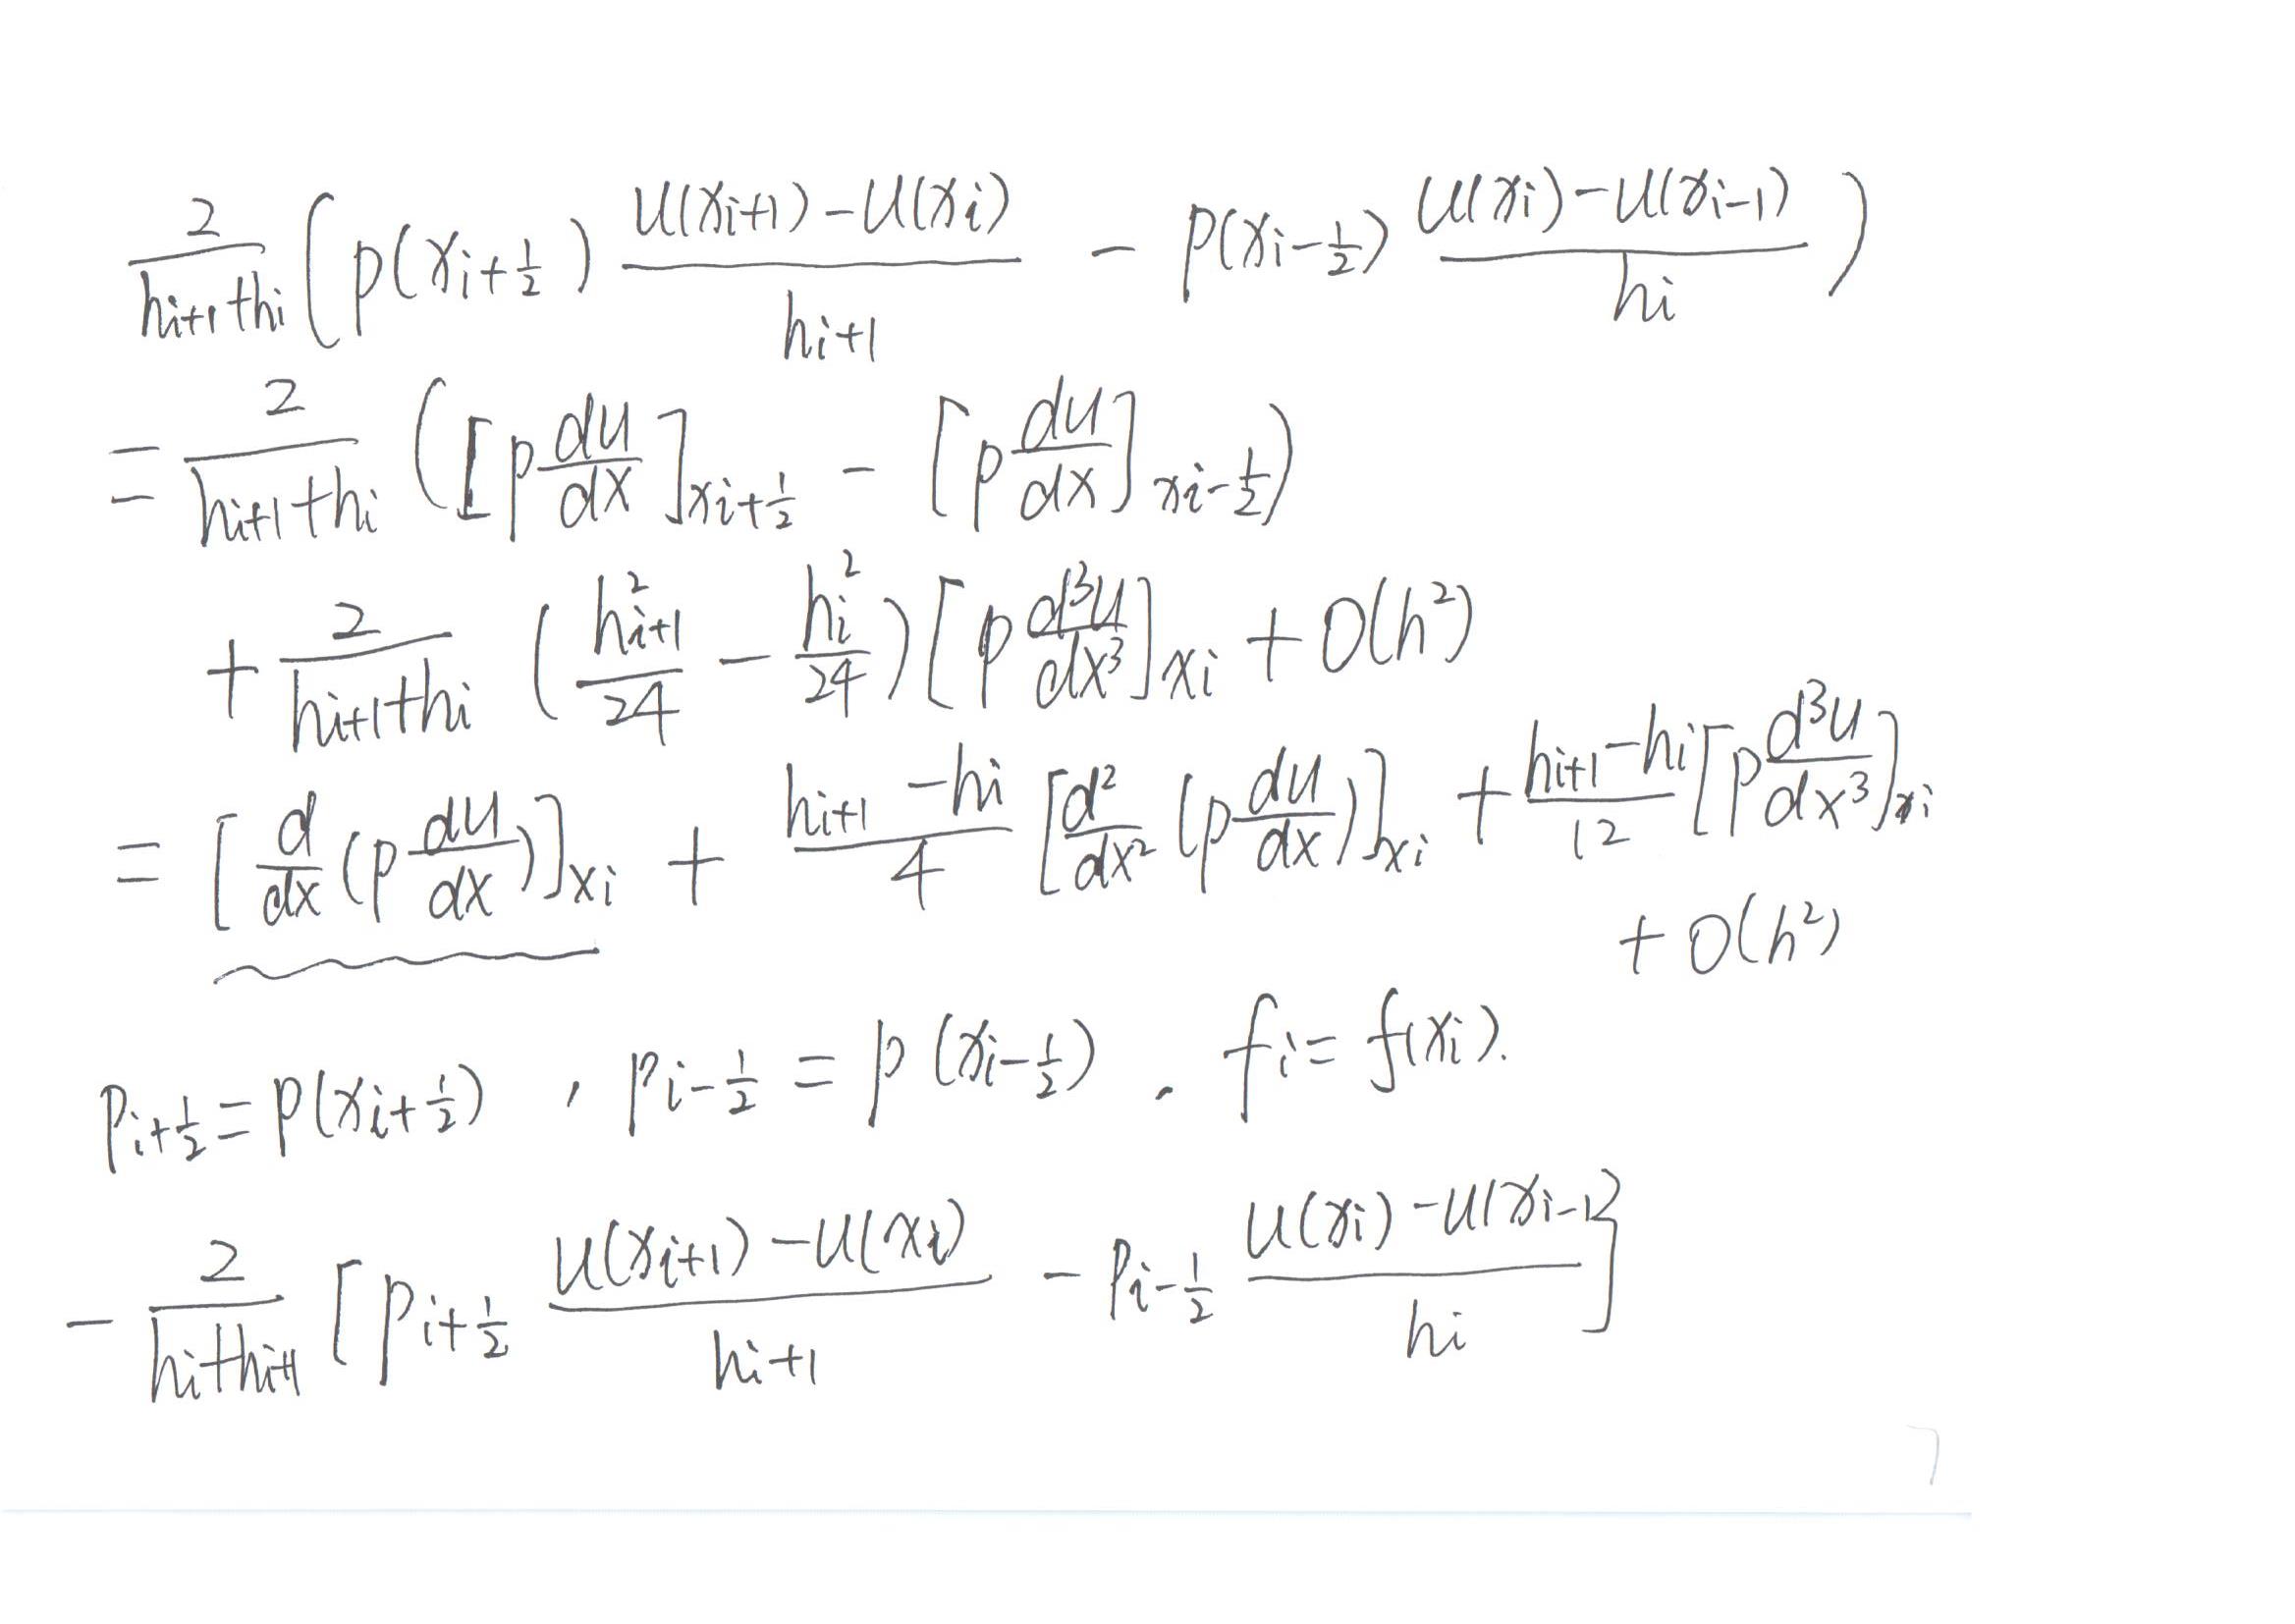 \frac{2}{h_{i+1}+h_i}\left(p(x_{i+\frac{1}{2}})\frac{u(x_{i+1})-u(x_i)}{h_{i+1}}-p(x_{i-\frac{1}{2}})\frac{u(x_i)-u(x_{i-1})}{h_i}\right)
=\frac{2}{h_{i+1}+h_i}\left(\left[p\frac{du}{dx}\right]_{x_{i+\frac{1}{2}}}-\left[p\frac{du}{dx}\right]_{x_{i-\frac{1}{2}}}\right)
+\frac{2}{h_{i+1}+h_i}\left(\frac{h_{i+1}^2}{24}-\frac{h_i^2}{24}\right)\left[p\frac{d^3u}{dx^3}\right]_{x_i}+O(h^2)
=\left[\frac{d}{dx}\left(p\frac{du}{dx}\right)\right]_{x_i}+\frac{h_{i+1}-h_i}{4}\left[\frac{d^2}{dx^2}\left(p\frac{du}{dx}\right)\right]_{x_i}+\frac{h_{i+1}-h_i}{12}\left[p\frac{d^3u}{dx^3}\right]_{x_i}
+O(h^2)
p_{i+\frac{1}{2}}=p(x_{i+\frac{1}{2}}), p_{i-\frac{1}{2}}=p(x_{i-\frac{1}{2}}). f_i=f(x_i).
-\frac{2}{h_i+h_{i+1}}\left[p_{i+\frac{1}{2}}\frac{u(x_{i+1})-u(x_i)}{h_{i+1}}-p_{i-\frac{1}{2}}\frac{u(x_i)-u(x_{i-1})}{h_i}\right]